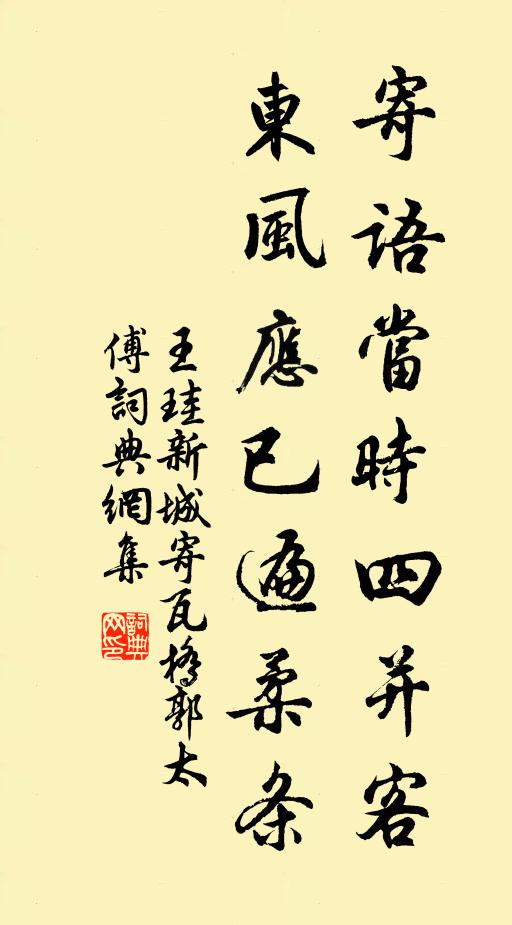 寄語當時四并客
東風應已遍柔条
王珪新城寄瓦橋郭太
傅詞典網集
詞典
网印